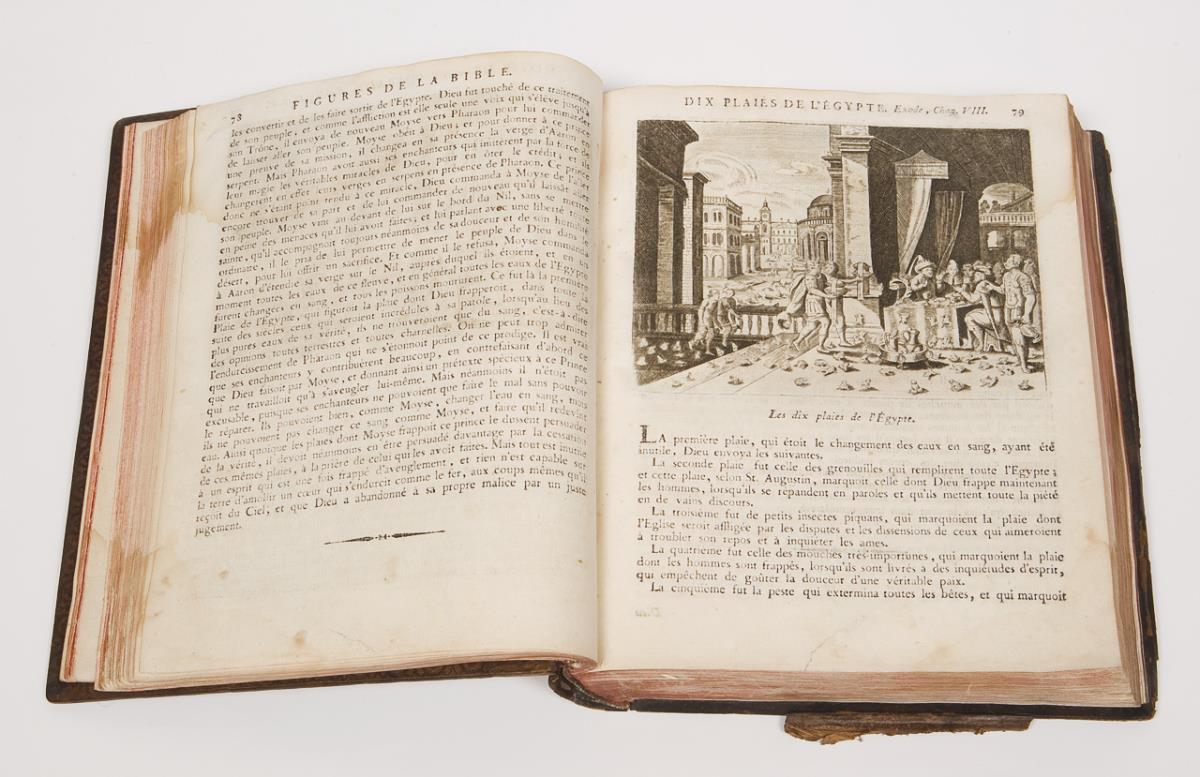 78 FIGURES DE LA BIBLE.
les convertir et de les faire sortir de l'Egypte. Dieu fut touché de ce traitement
de son peuple, et comme l'affliction est elle seule une voix qui s'élève jusqu'à
son Trône, il envoya de nouveau Moyse vers Pharaon pour lui commander
de laisser aller son peuple. Moyse obéit à Dieu; et pour donner à ce prince
une preuve de sa mission, il changea en sa présence la verge d'Aaron en
serpent. Mais Pharaon avoit aussi ses enchanteurs qui imiterent par la force de
leur magie les véritables miracles de Dieu, pour en ôter le crédit, et ils
changerent en effet leurs verges en serpens en présence de Pharaon. Ce prince
donc ne s'étant point rendu à ce miracle, Dieu commanda à Moyse de l'aller
encore trouver de sa part et de lui commander de nouveau qu'il laissât aller
son peuple. Moyse vint au-devant de lui sur le bord du Nil, sans se mettre
en peine des menaces qu'il lui avoit faites, et lui parlant avec une liberté toute
sainte, qu'il accompagnoit toujours néanmoins de sa douceur et de son humilité
ordinaire, il le pria de lui permettre de mener le peuple de Dieu dans le
désert, pour lui offrir un sacrifice. Et comme il le refusa, Moyse commanda
à Aaron d'étendre sa verge sur le Nil, auprès duquel ils étoient, et en un
moment toutes les eaux de ce fleuve, et en général toutes les eaux de l'Egypte
furent changées en sang, et tous les poissons moururent. Ce fut là la premiere
Plaie de l'Egypte, qui figuroit la plaie dont Dieu frapperoit, dans toute la
suite des siècles ceux qui seroient incrédules à sa parole, lorsqu'au lieu des
plus pures eaux de sa vérité, ils ne trouveroient que du sang, c'est-à-dire
des opinions toutes terrestres et toutes charnelles. On ne peut trop admirer
l'endurcissement de Pharaon qui ne s'étonnoit point de ce prodige. Il est vrai
que ses enchanteurs y contribuèrent beaucoup, en contrefaisant d'abord ce
que Dieu faisoit par Moyse, et donnant ainsi un prétexte spécieux à ce Prince
qui ne travailloit qu'à s'aveugler lui-même. Mais néanmoins il n'étoit pas
excusable, puisque ses enchanteurs ne pouvoient que faire le mal sans pouvoir
le réparer. Ils pouvoient bien, comme Moyse, changer l'eau en sang, mais
ils ne pouvoient pas changer ce sang comme Moyse, et faire qu'il redevînt
eau. Ainsi quoique les plaies dont Moyse frappoit ce prince le dussent persuader
de la vérité, il devoit néanmoins en être persuadé davantage par la cessation
de ces mêmes plaies, à la prière de celui qui les avoit faites. Mais tout est inutile
à un esprit qui est une fois frappé d'aveuglement, et rien n'est capable sur
la terre d'amollir un cœur qui s'endurcit comme le fer, aux coups mêmes qu'il
reçoit du Ciel, et que Dieu a abandonné à sa propre malice par un juste
jugement.
DIX PLAIES DE L'ÉGYPTE. Exode, Chap. VIII. 79
Les dix plaies de l'Égypte.
LA première plaie, qui étoit le changement des eaux en sang, ayant été
inutile, Dieu envoya les suivantes.
La seconde plaie fut celle des grenouilles qui remplirent toute l'Egypte;
et cette plaie, selon St. Augustin, marquoit celle dont Dieu frappe maintenant
les hommes, lorsqu'ils se répandent en paroles et qu'ils mettent toute la piété
en de vains discours.
La troisième fut de petits insectes piquans, qui marquoient la plaie dont
l'Eglise seroit affligée par les disputes et les dissensions de ceux qui aimeroient
à troubler son repos et à inquiéter les ames.
La quatrième fut celle des mouches très-importunes, qui marquoient la plaie
dont les hommes sont frappés, lorsqu'ils sont livrés à des inquiétudes d'esprit,
qui empêchent de goûter la douceur d'une véritable paix.
La cinquieme fut la peste qui extermina toutes les bêtes, et qui marquoit